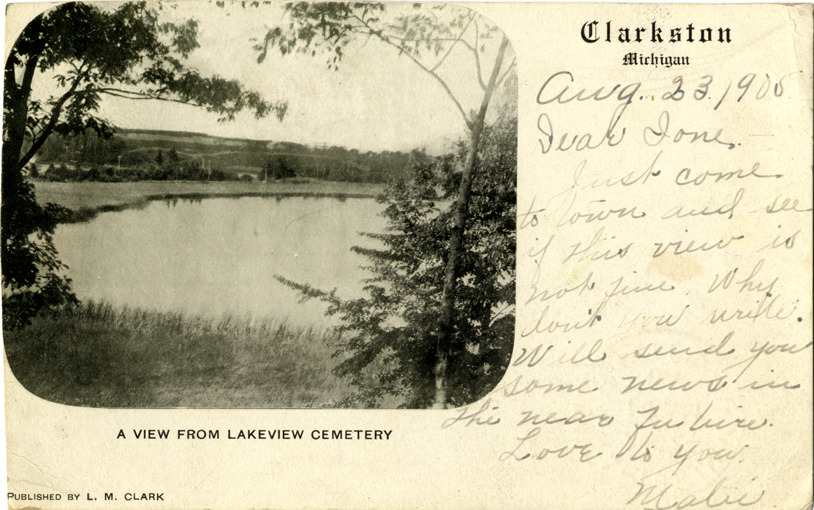 Clarkston
Michigan
Aug. 23, 1905
Dear Ione.
Just come
to town and see
if this view is
not fine. Why
don't you write.
Will send you
some news in
the near future.
Love to you.
A VIEW FROM LAKEVIEW CEMETERY
PUBLISHED BY L. M. CLARK